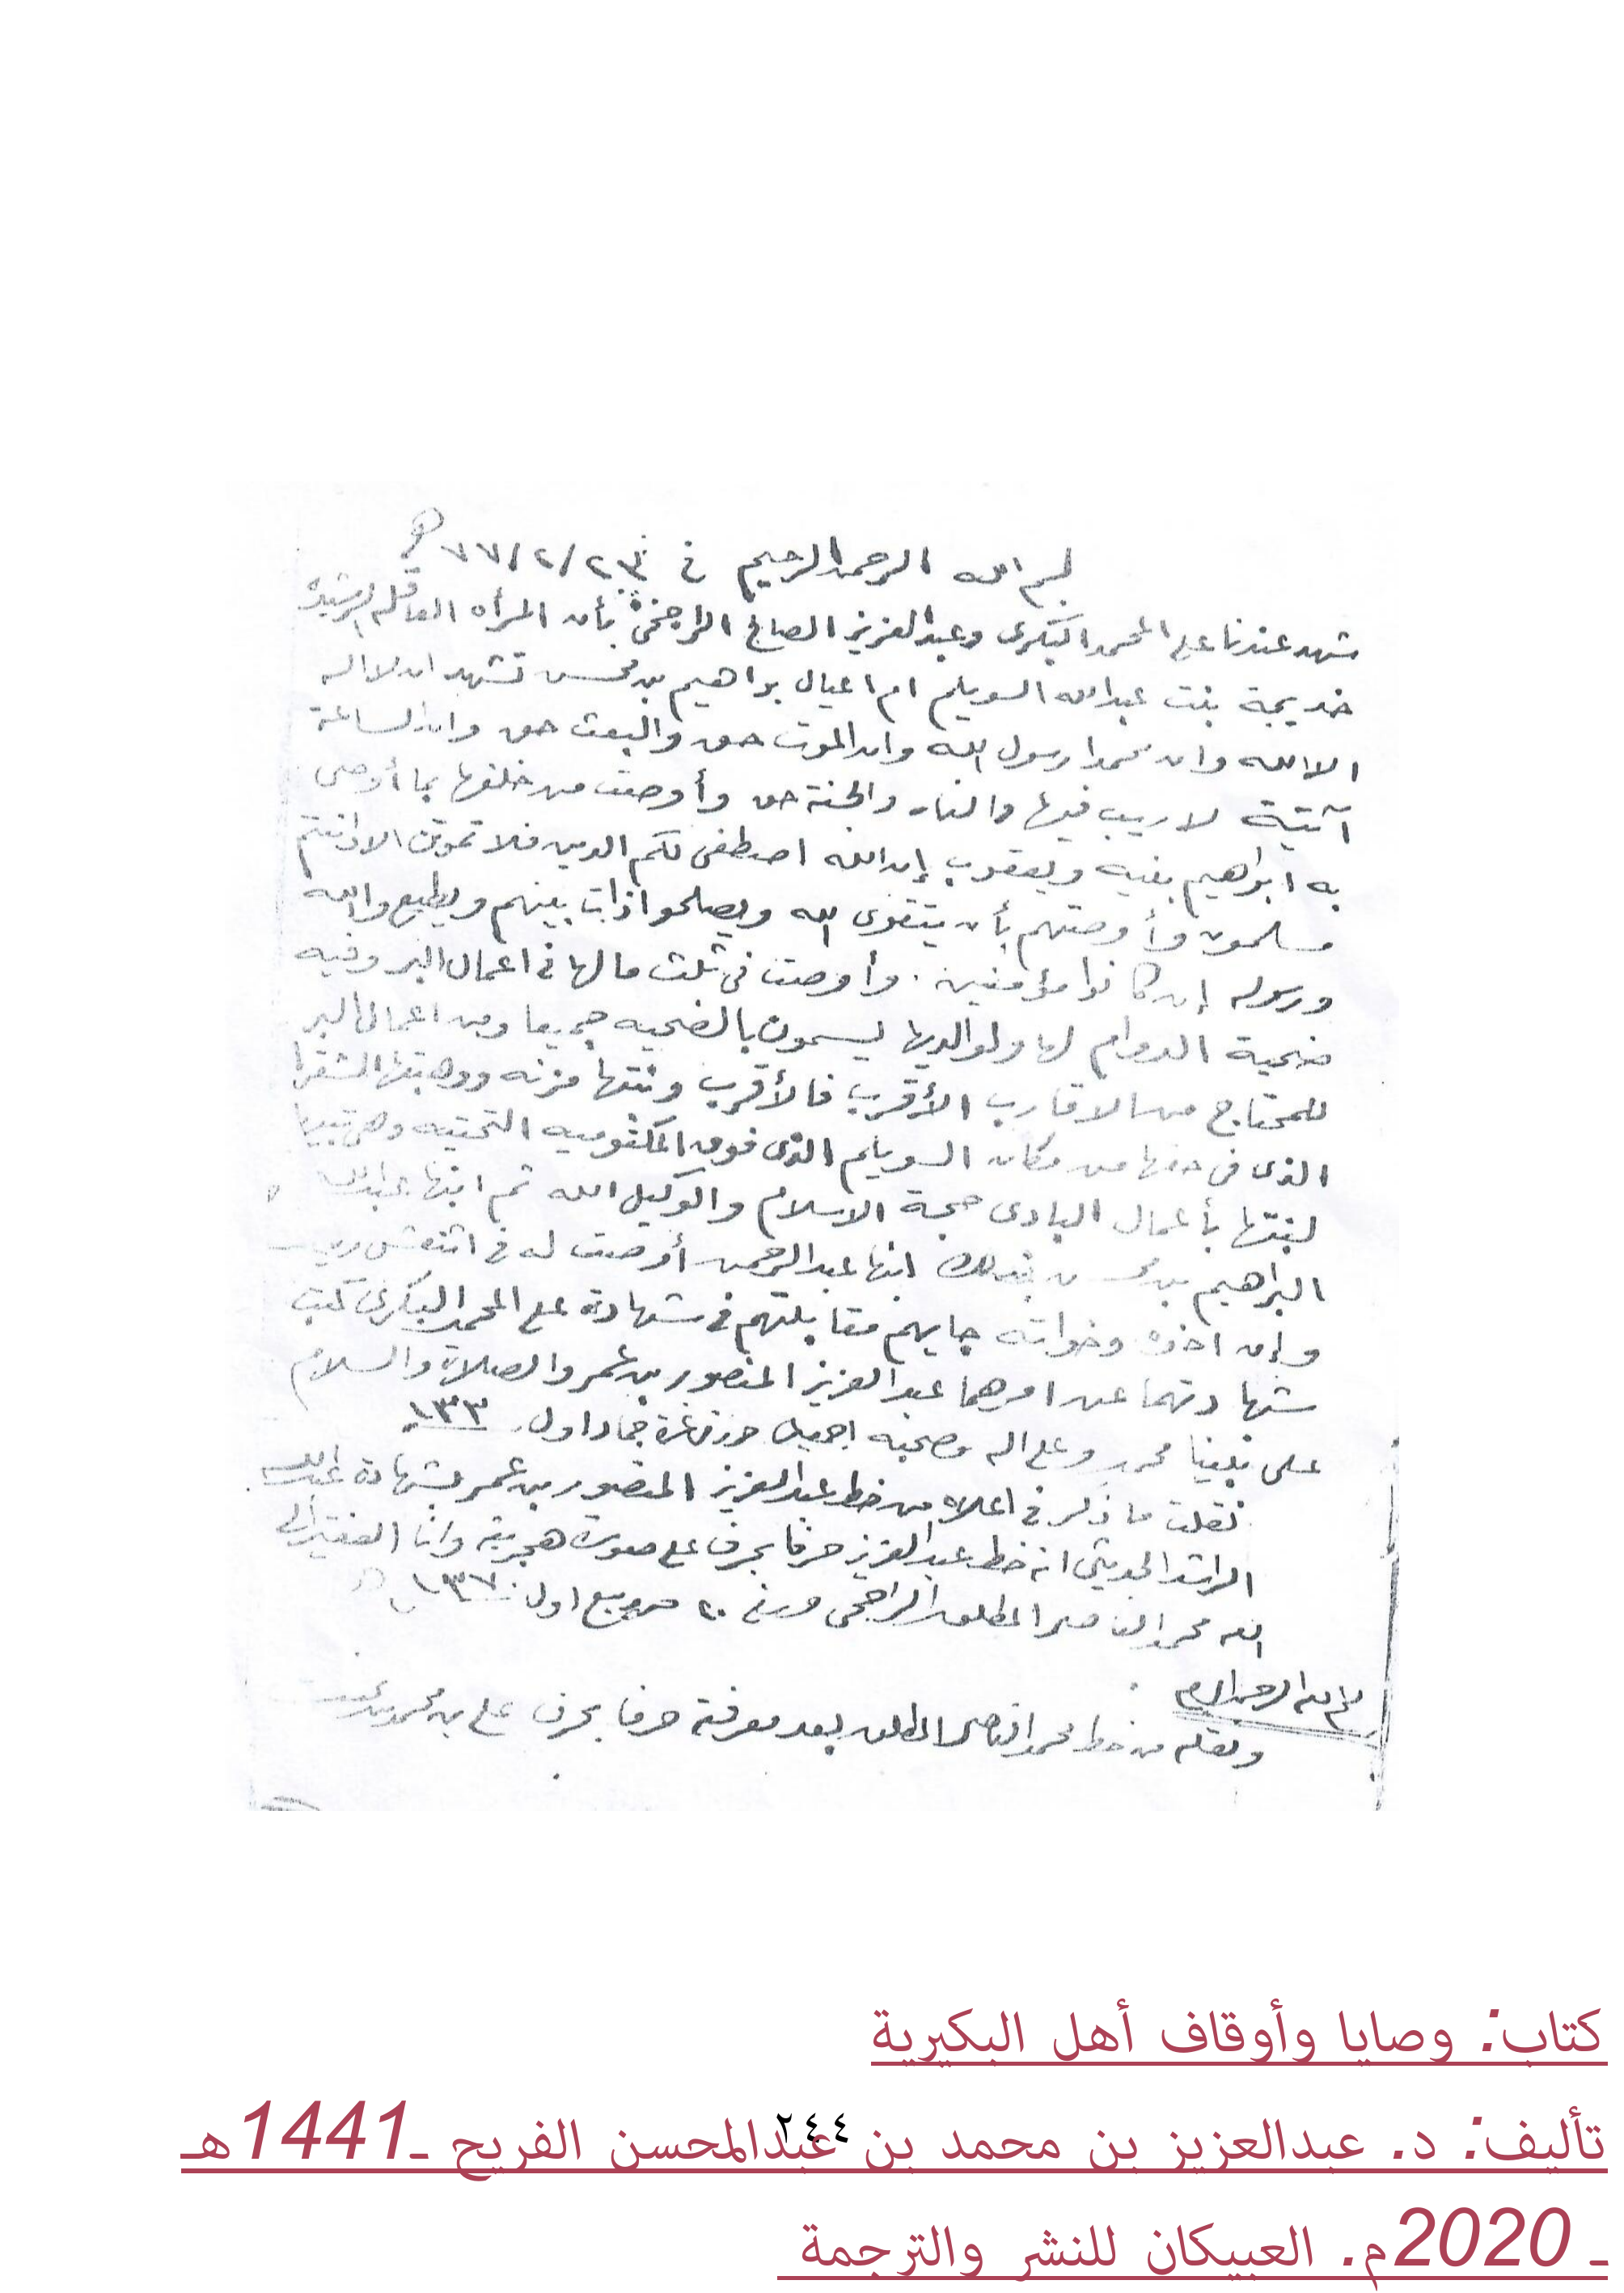 بسم الله الرحمن الرحيم في ٧٧/٢/٢٣ هـ
شهد عندنا علي المحمد البكري وعبدالعزيز الصالح الراجحي بأن المرأه العاقله الرشيده
خديجة بنت عبدالله السويلم ام اعيال براهيم بن محسن تشهد ان لا اله
الا الله وان محمدا رسول الله وان الموت حق والبعث حق وان الساعة
آتية لا ريب فيها والنار والجنة حق وأوصت من خلفها بما أوصى
به ابراهيم بنيه ويعقوب إن الله اصطفى لكم الدين فلا تموتن الا وانتم
مسلمون وأوصتهم بأن يتقوى الله ويصلحوا ذات بينهم ويطيعوا الله
ورسوله إن كانوا مؤمنين . وأوصت في ثلث مالها في اعمال البر وفيه
ضحية الدوام لها ولوالديها ليسمون بالضحيه جميعا ومن اعمال البر
للمحتاج من الاقارب الأقرب فالأقرب وبنتها مزنه ووهبتها الشقرا
الذي في حقها من مكان السويلم الذي فوق المكتوميه التحتيه وهي تبيا
لبنتها بأعمال البادى حجة الاسلام والوكيل الله ثم ابنها عبدالله
البراهيم بن ابنها عبدالرحمن أوصت له في اثنعش ريال
وإن اخذه وخواته جايهم مقابلتهم في شهادة علي المحمد البكري كتب
شهادتهما عن امرهما عبدالعزيز المنصور بن عمر والصلاة والسلام
على نبينا محمد وعلى اله وصحبه اجمعين حرر في غرة جماد اول ١٣٣
نقلت ما ذكر في اعلاه من خط عبدالعزيز المنصور بن عمر بشهادة عبدالله
الراشد الحديثي انه خط عبدالعزيز حرفا بحرف على صورت هجريته وانا الفقير الى
الله محمد الناصر المطلق الراجحي ٢٠ ربيع اول ١٣٧
بسم الله الرحمن الرحيم
ونقله من خط محمد الناصر المطلق بعد معرفة حرفا بحرف علي بن محمد بن
كتاب: وصايا وأوقاف أهل البكيرية
تأليف: د. عبدالعزيز بن محمد بن عبدالمحسن الفريح ـ1441هـ
ـ 2020م. العبيكان للنشر والترجمة
٢٤٤